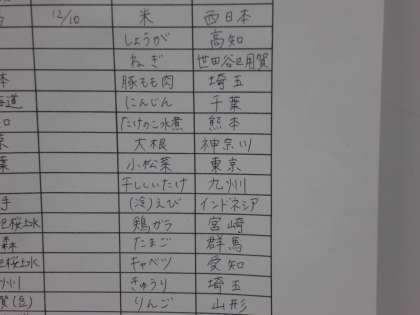 12/10 米 西日本
しょうが 高知
ねぎ 世田谷区用賀
本 豚もも肉 埼玉
海道 にんじん 千葉
たけのこ水煮 熊本
大根 神奈川
葉 小松菜 東京
干ししいたけ 九州
手 (冷)えび インドネシア
桜上水 鶏ガラ 宮崎
森 たまご 群馬
桜上水 キャベツ 愛知
州 きゅうり 埼玉
賀(岳) りんご 山形